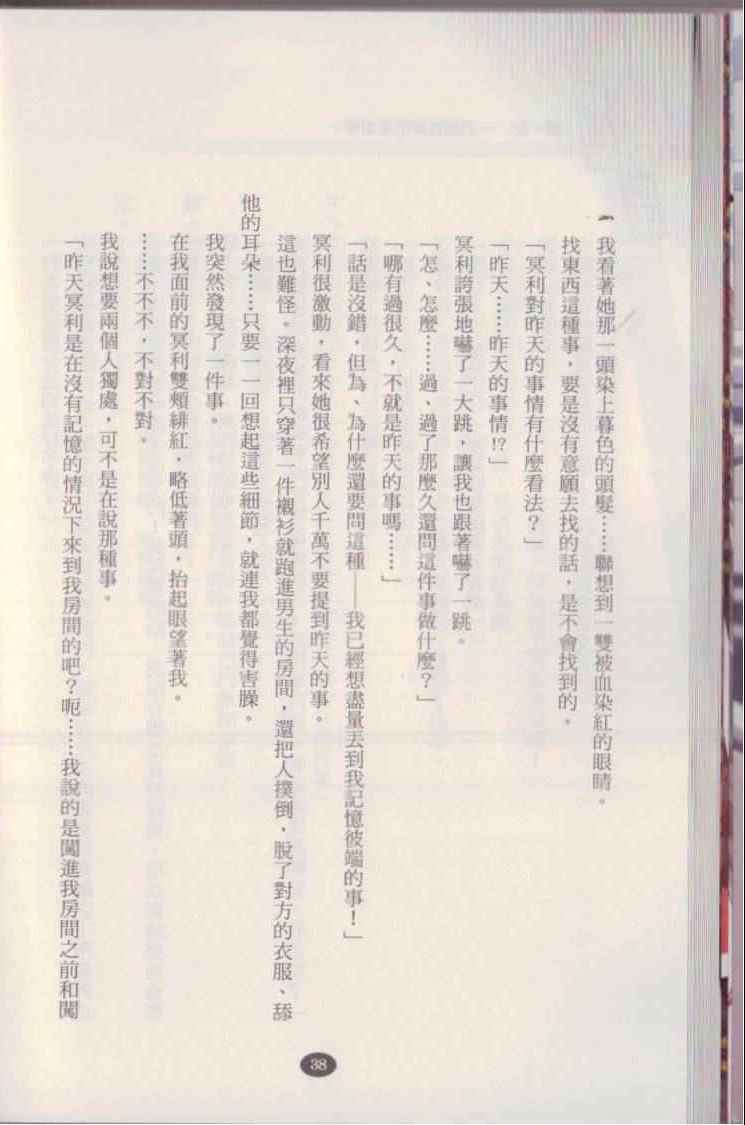 我看著她那一頭染上暮色的頭髮……聯想到一雙被血染紅的眼睛。
找東西這種事，要是沒有意願去找的話，是不會找到的。
「冥利對昨天的事情有什麼看法？」
「昨天……昨天的事情!?」
冥利誇張地嚇了一大跳，讓我也跟著嚇了一跳。
「怎、怎麼……過、過了那麼久還問這件事做什麼？」
「哪有過很久，不就是昨天的事嗎……」
「話是沒錯，但為、為什麼還要問這種——我已經想盡量丟到我記憶彼端的事！」
冥利很激動，看來她很希望別人千萬不要提到昨天的事。
這也難怪。深夜裡只穿著一件襯衫就跑進男生的房間，還把人撲倒、脫了對方的衣服、舔
他的耳朵……只要一一回想起這些細節，就連我都覺得害臊。
我突然發現了一件事。
在我面前的冥利雙頰緋紅，略低著頭，抬起眼望著我。
……不不不，不對不對。
我說想要兩個人獨處，可不是在說那種事。
「昨天冥利是在沒有記憶的情況下來到我房間的吧？呃……我說的是闖進我房間之前和闖
38